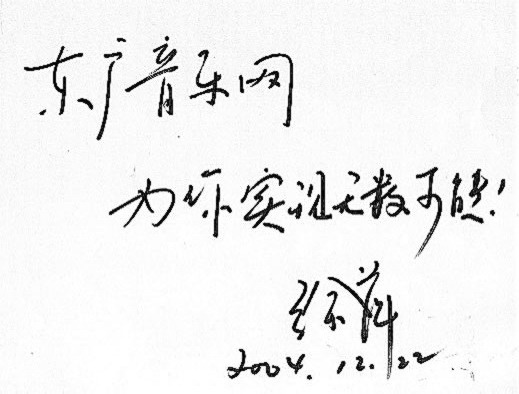 东广音乐网
为你实现无数可能!
2004.12.22